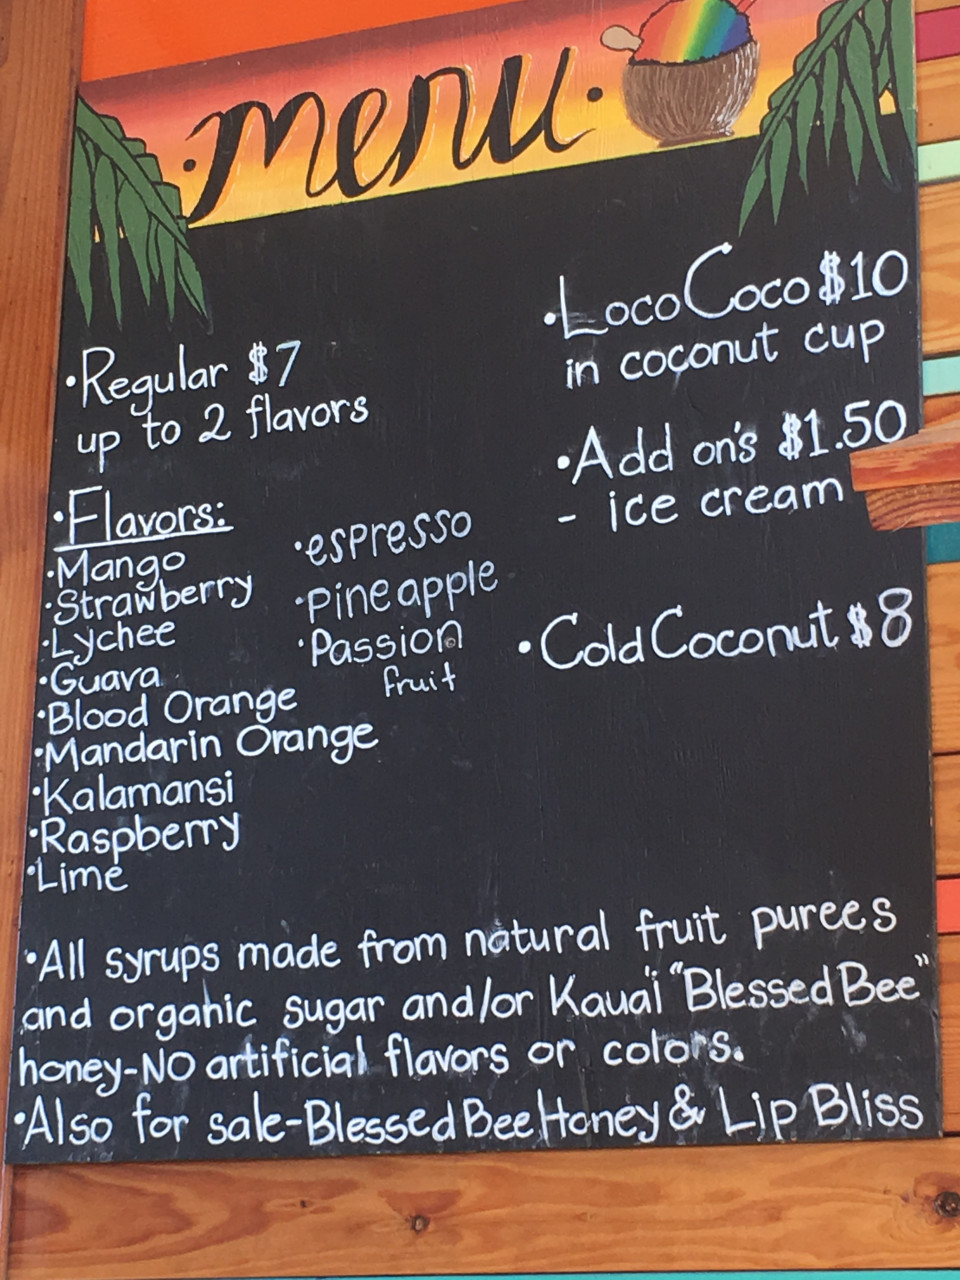 menu
Regular $7
up to 2 flavors
Flavors:
Mango
Strawberry
Lychee
Guava
Blood Orange
Mandarin Orange
Kalamansi
Raspberry
Lime
espresso
Pineapple
Passion
fruit
Loco Coco $10
in coconut cup
Add on's $1.50
- ice cream
Cold Coconut $8
All syrups made from natural fruit purees
and organic sugar and/or Kaua'i "Blessed Bee"
honey-NO artificial flavors or colors.
Also for sale-Blessed Bee Honey & Lip Bliss